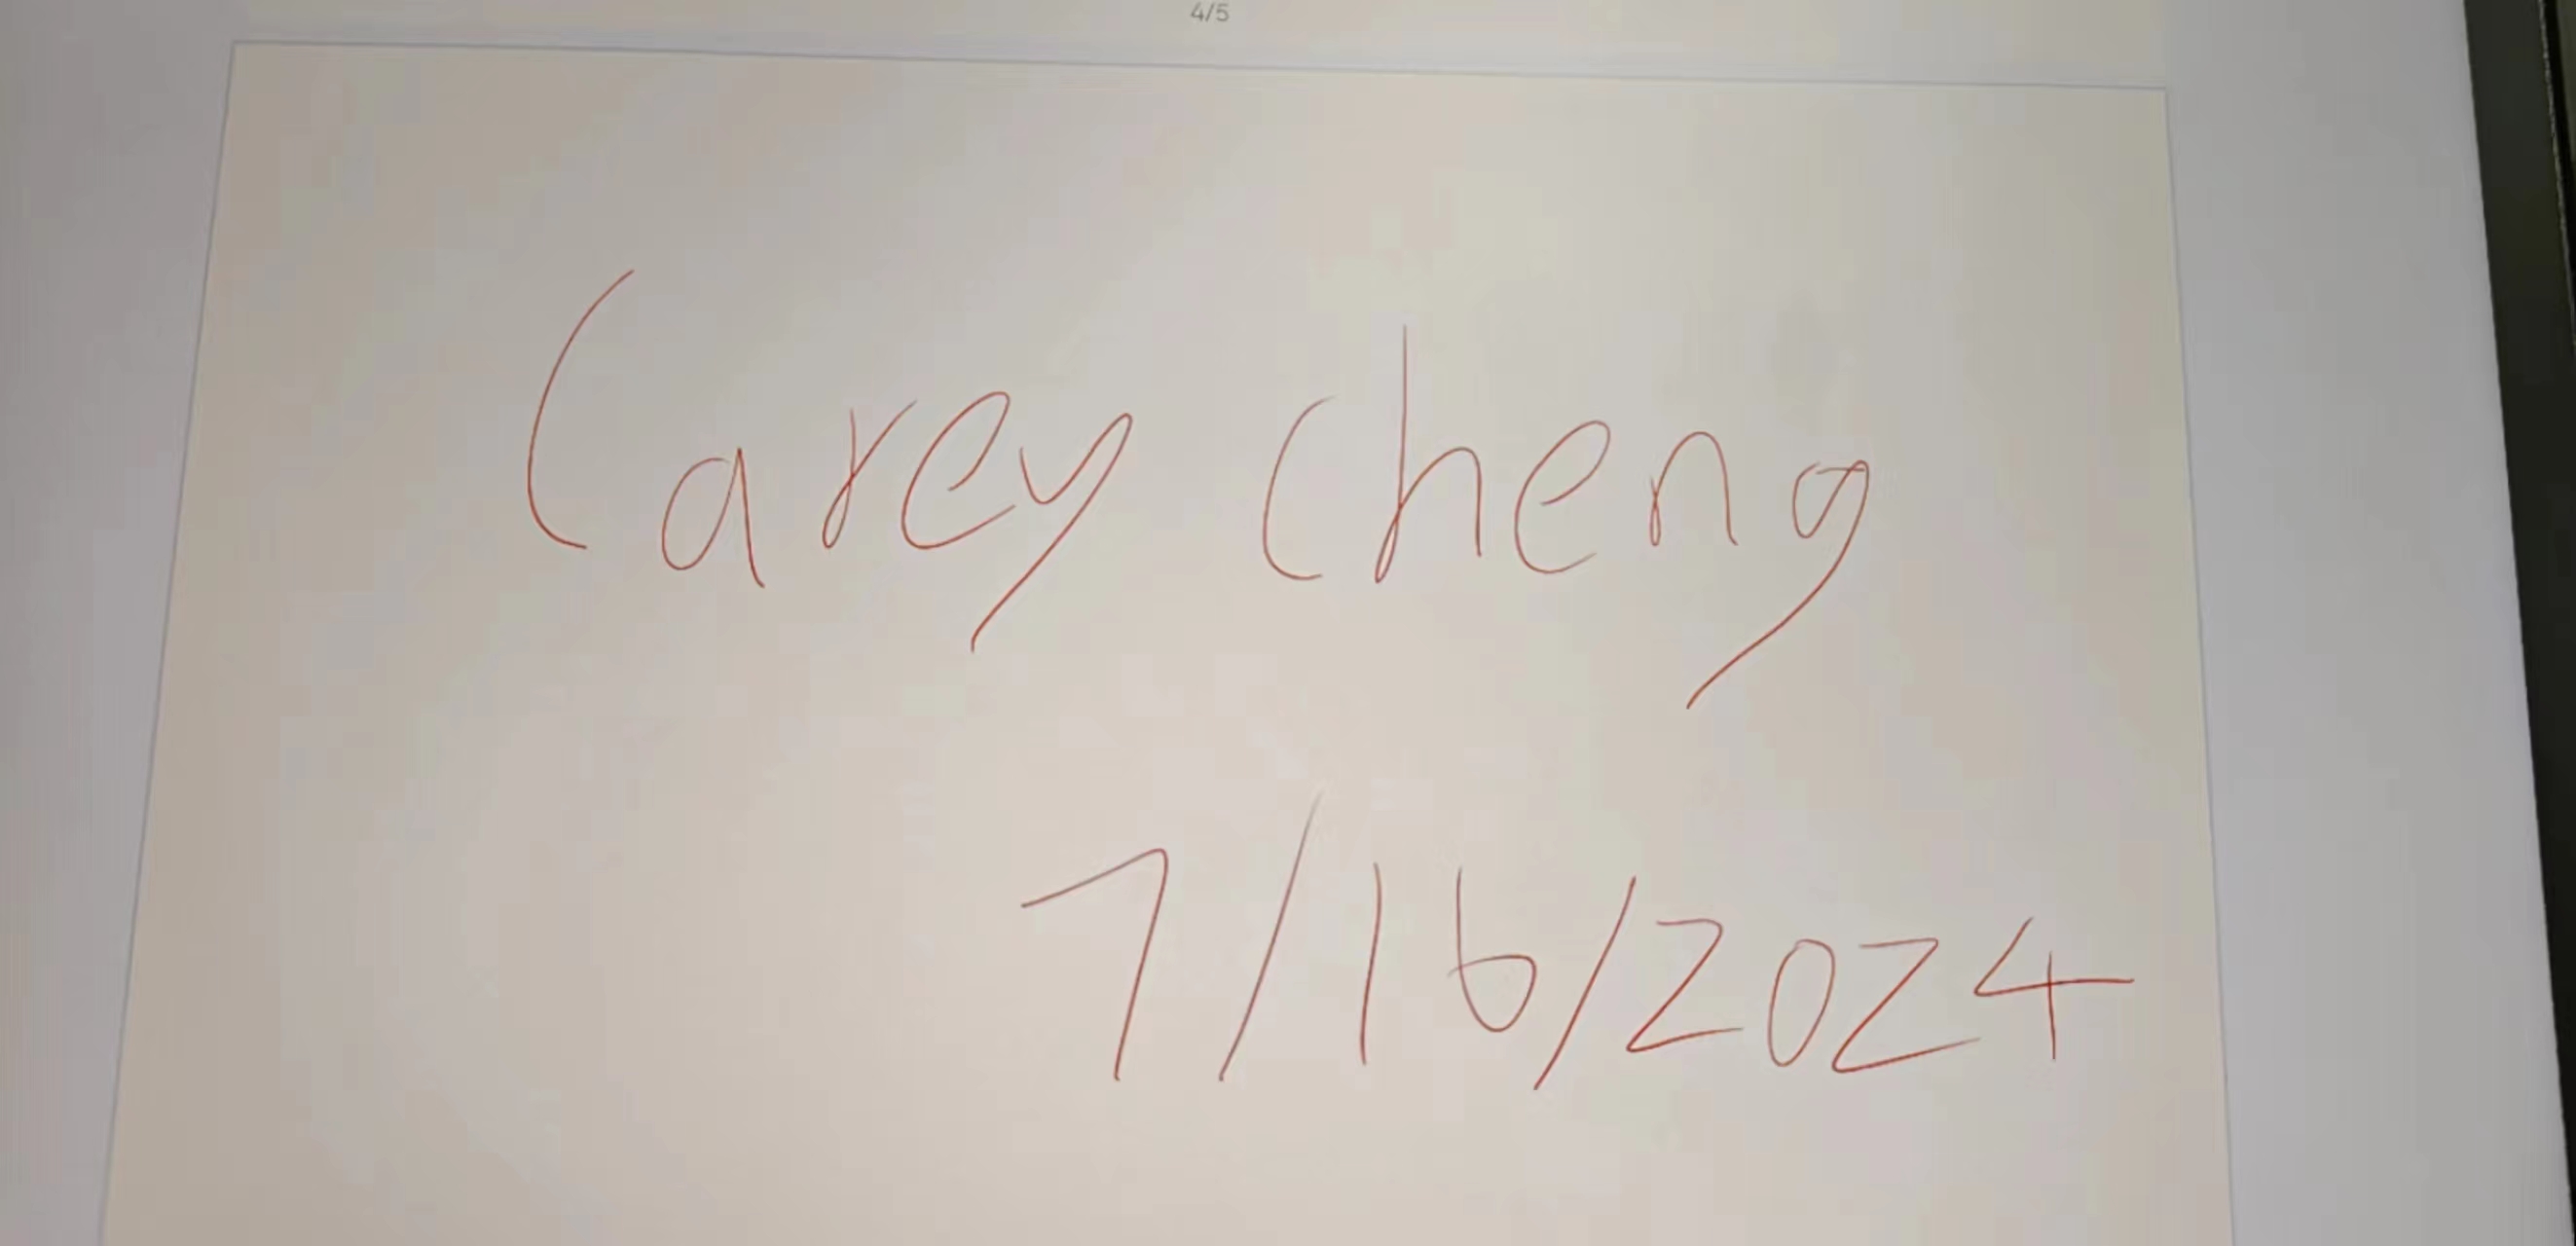 4/5
Carey Cheng
7/16/2024